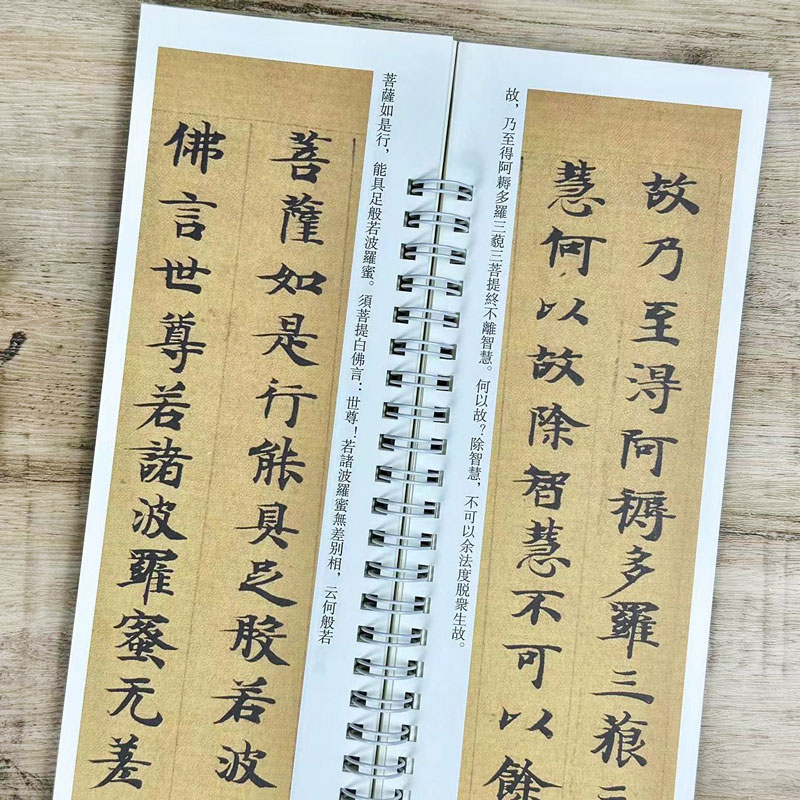 故乃至淂阿耨多羅三藐三
慧何以故除智慧不可以餘
故，乃至得阿耨多羅三藐三菩提終不離智慧。何以故？除智慧，不可以余法度脱衆生故。
菩薩如是行，能具足般若波羅蜜。須菩提白佛言：世尊！若諸波羅蜜無差别相，云何般若
菩薩如是行能具足般若波
佛言世尊若諸波羅蜜无差